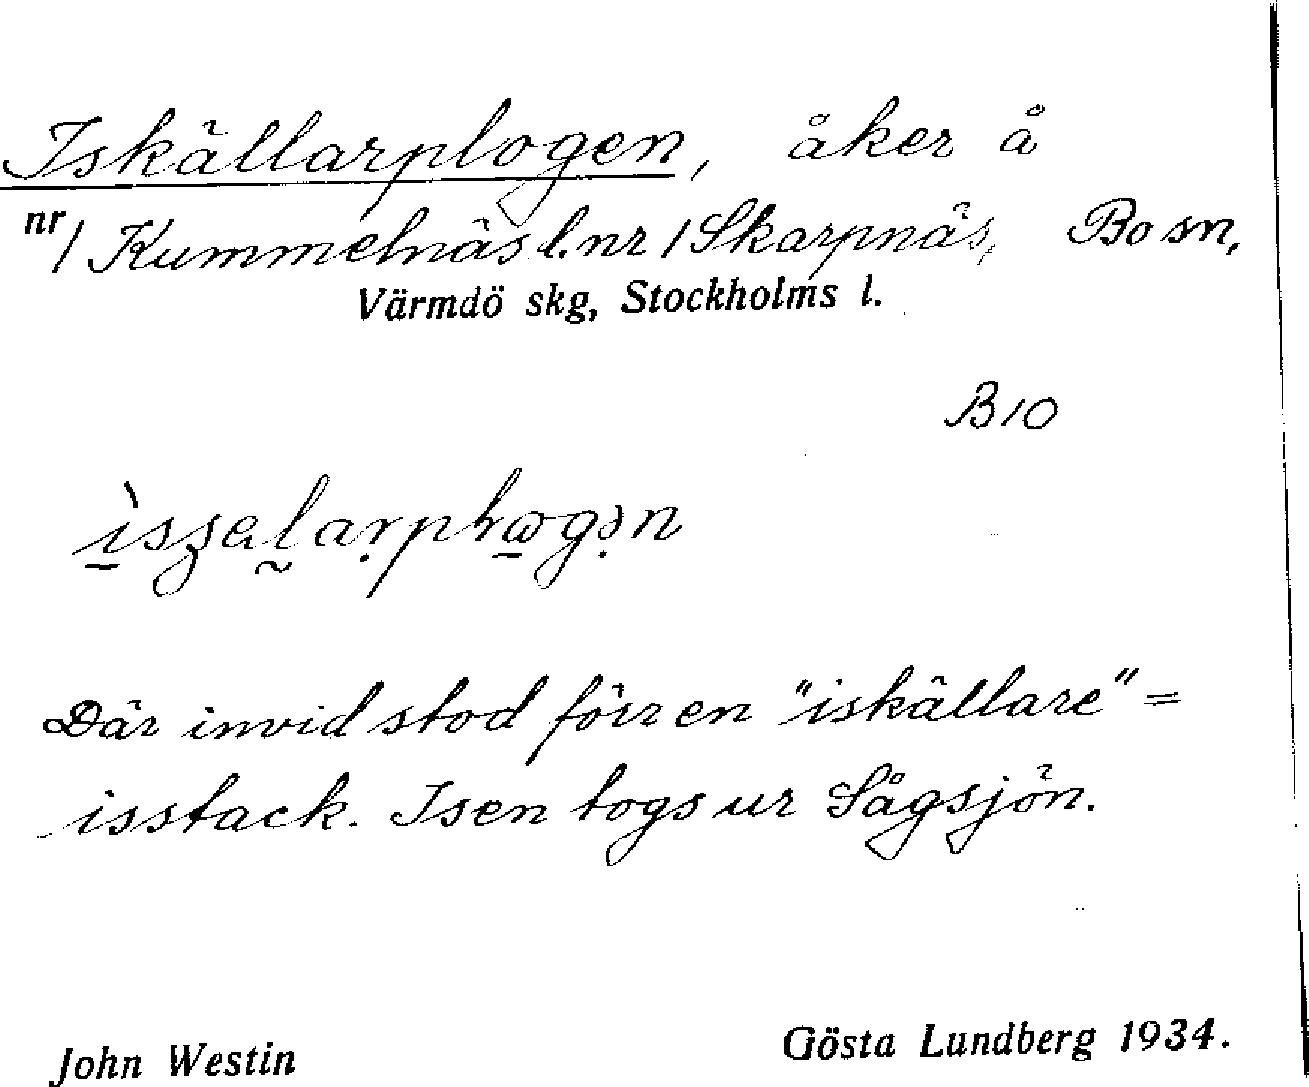 Iskällarplogen, åker å
nr 1 Kummelnäs l. nr 1 Skarpnäs, Bo sn,
Värmdö skg, Stockholms l.
B10
Där invid stod förr en "iskällare" =
isstack. Isen togs ur Sågsjön.
John Westin Gösta Lundberg 1934.